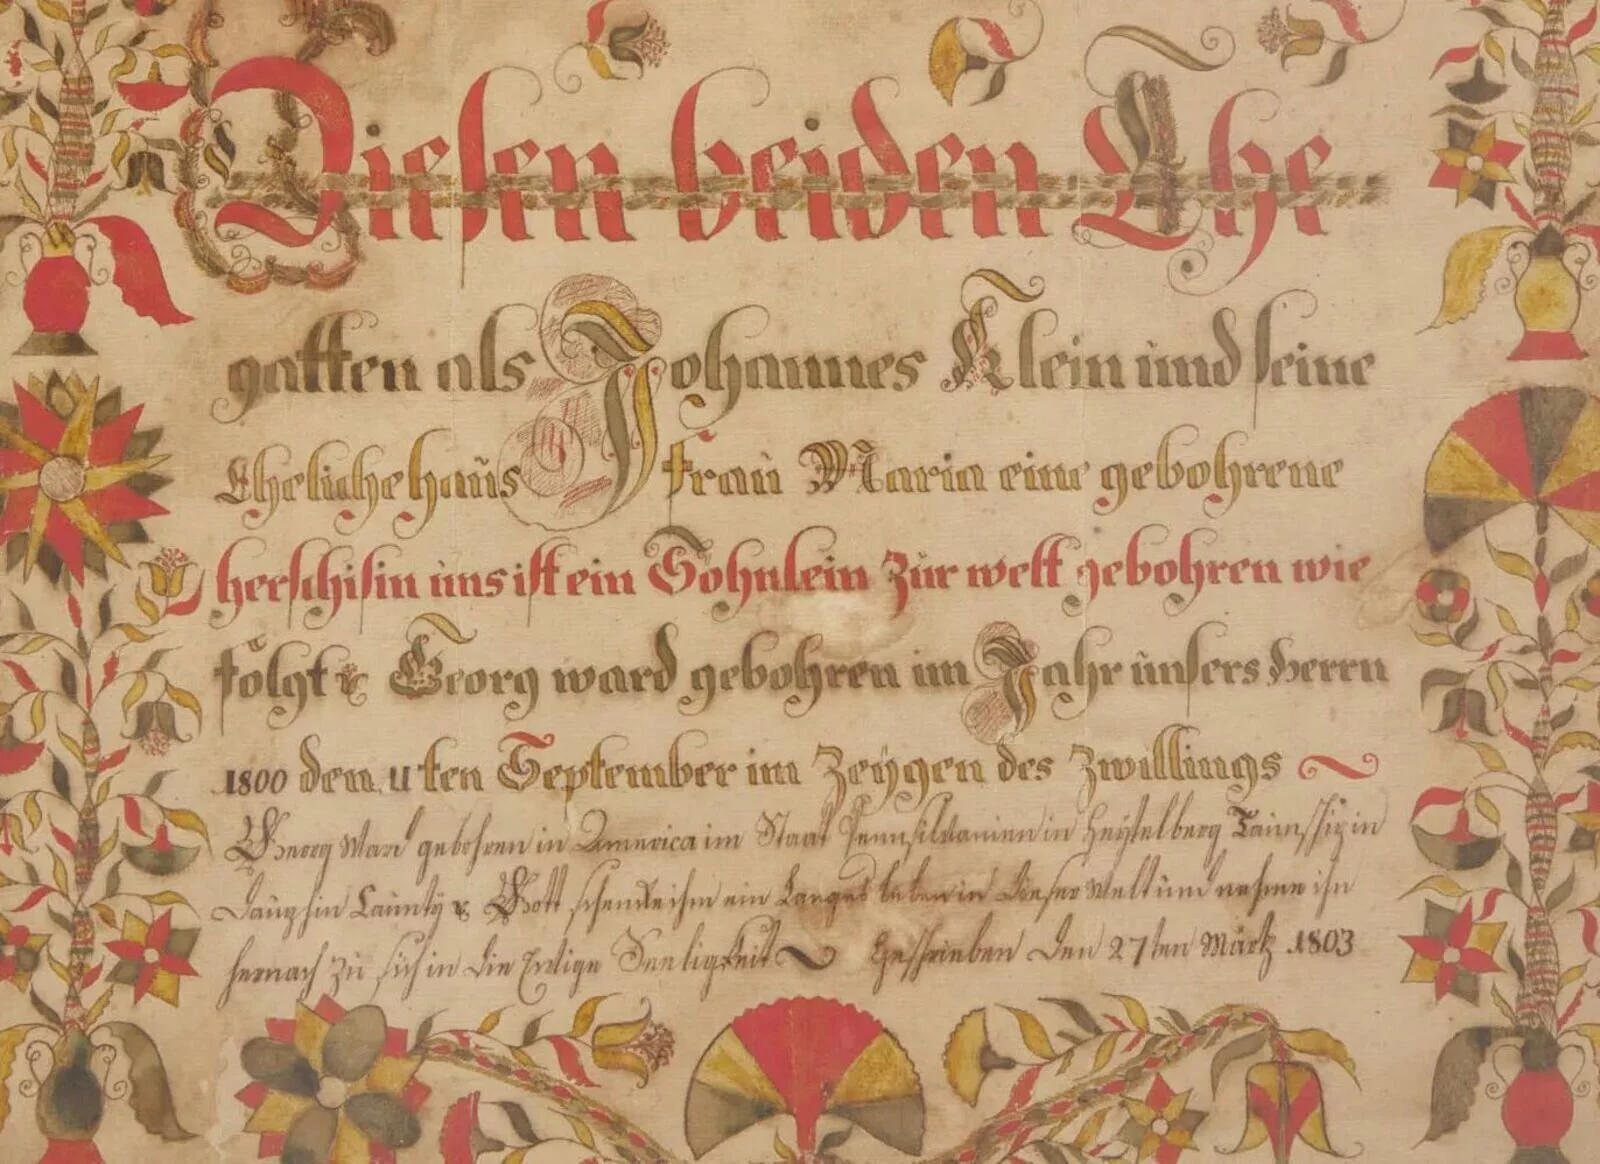 Diesen beiden Ehe
gatten als Johannes Klein und seine
Eheliche haus frau Maria eine gebohrene
herschisin uns ist ein Sohnlein zur welt gebohren wie
folgt Georg ward gebohren im Jahr unsers Herrn
1800 den 11ten September im Zeÿgen des Zwillings
Georg Ward gebohren in America im Staat Pennsilvanien in Heÿtelberg Taunschip in
Dauphin Caunty Gott schencke ihm ein Langes leben in Dieser Welt und nehme ihn
hernach zu sich in die Ewige Seeligkeit Geschrieben den 27ten Märtz 1803